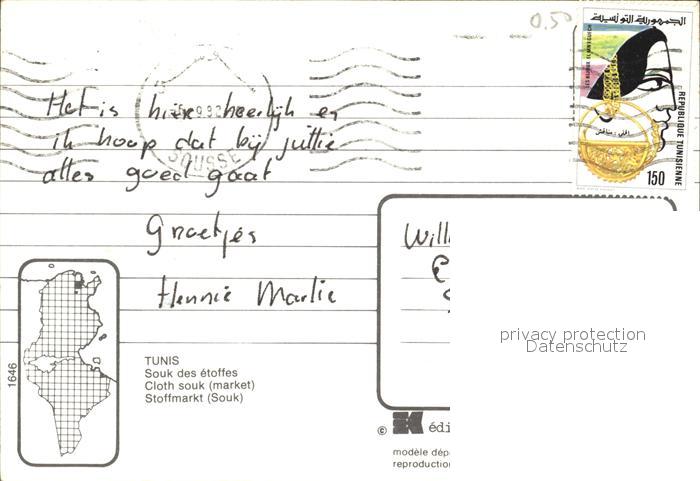 0.50
الجمهورية التونسية
REPUBLIQUE TUNISIENNE
150
9.92
SOUSSE
Het is hier heerlijk en
ik hoop dat bij jullie
alles goed gaat
Groetjes
Hennie Marlie
Will
1646
TUNIS
Souk des étoffes
Cloth souk (market)
Stoffmarkt (Souk)
privacy protection
Datenschutz
© édi
modèle dép
reproductio